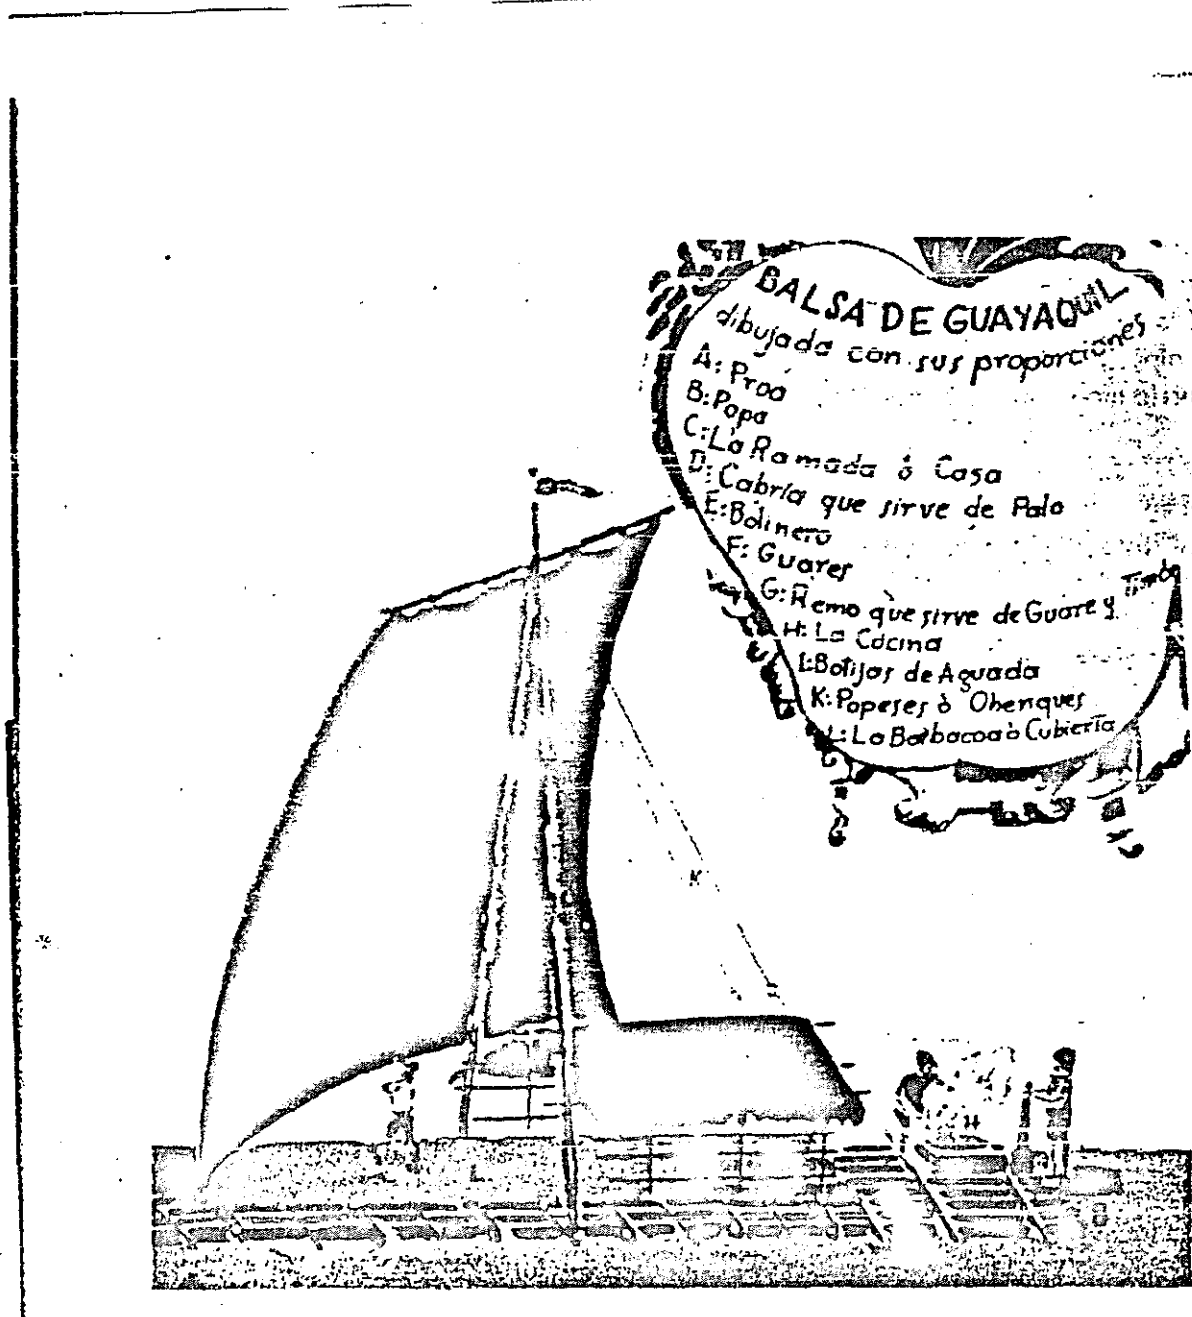 BALSA DE GUAYAQUIL
dibujada con sus proporciones
A: Proa
B: Popa
C: La Ramada ò Casa
D: Cabria que sirve de Palo
E: Bolinero
F: Guares
G: Remo que sirve de Guare y Timòn
H: La Cocina
I: Botijas de Aguada
K: Popeses ò Obenques
L: La Barbacoa ò Cubierta
K
H